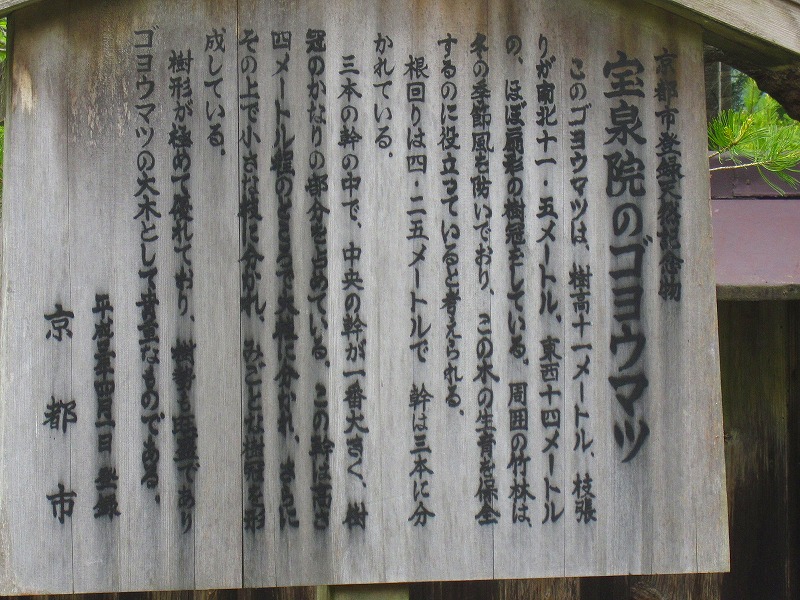 京都市登録天然記念物
宝泉院のゴヨウマツ
このゴヨウマツは、樹高十一メートル、枝張
りが南北十一・五メートル、東西十四メートル
の、ほぼ扇形の樹冠をしている。周囲の竹林は、
冬の季節風を防いでおり、この木の生育を保全
するのに役立っていると考えられる。
根回りは四・二五メートルで 幹は三本に分
かれている。
三本の幹の中で、中央の幹が一番大きく、樹
冠のかなりの部分を占めている。この幹は高さ
四メートル程のところで大枝に分かれ、さらに
その上で小さな枝に分かれ、みごとな樹冠を形
成している。
樹形が極めて優れており、樹勢も旺盛であり
ゴヨウマツの大木として貴重なものである。
平成 年四月一日 登録
京都市